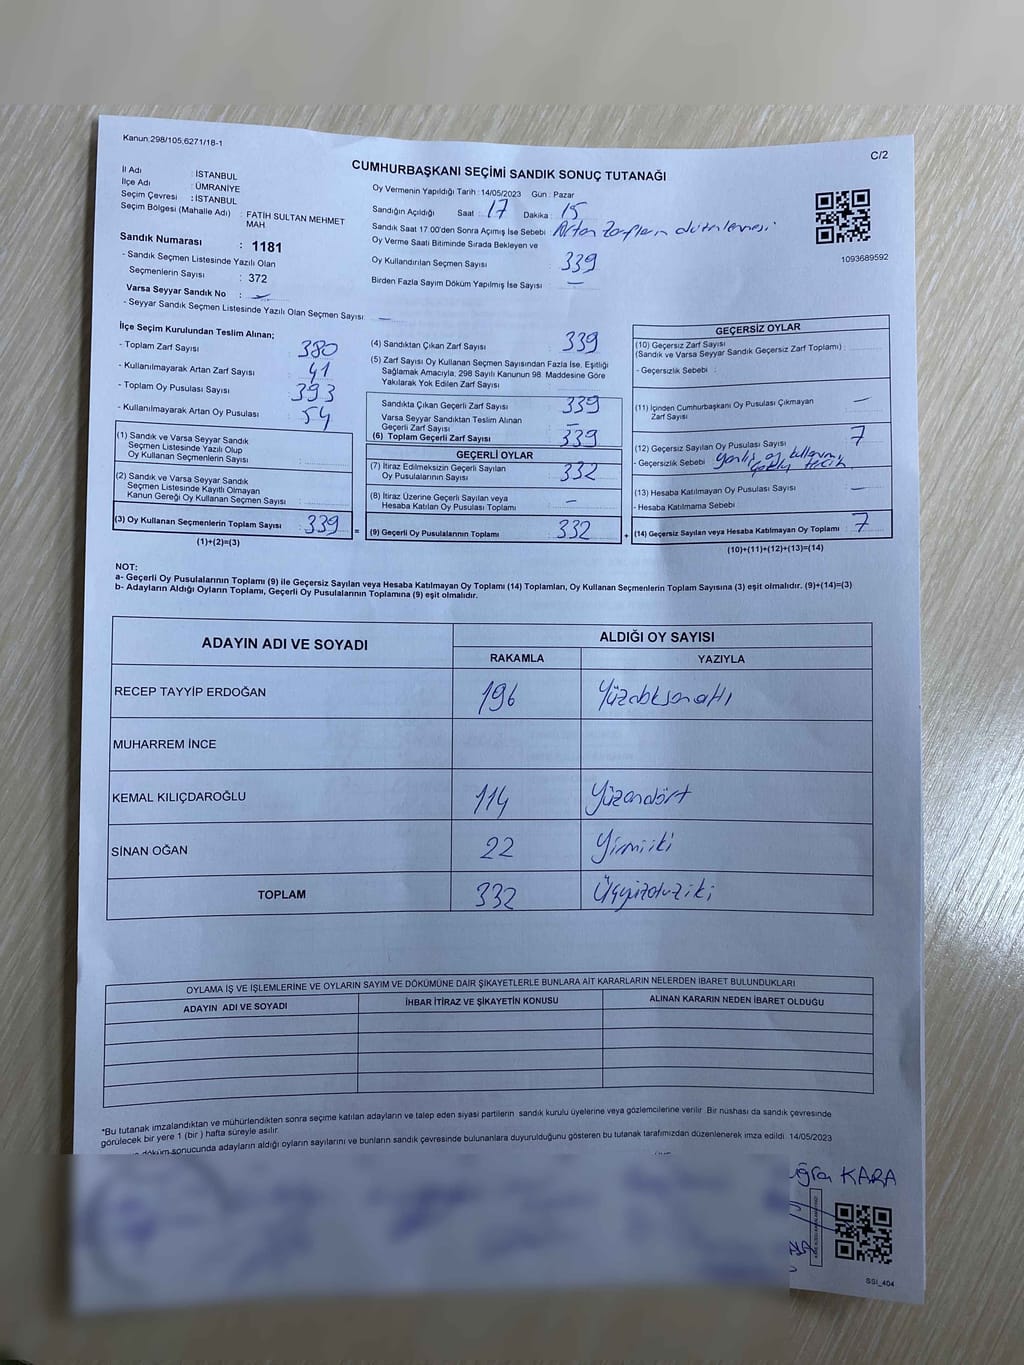 Kanun 298/105,6271/18-1
C/2
CUMHURBAŞKANI SEÇİMİ SANDIK SONUÇ TUTANAĞI
İl Adı : İSTANBUL
İlçe Adı : ÜMRANİYE
Seçim Çevresi : İSTANBUL
Seçim Bölgesi (Mahalle Adı) : FATİH SULTAN MEHMET
MAH
Sandık Numarası : 1181
- Sandık Seçmen Listesinde Yazılı Olan
Seçmenlerin Sayısı : 372
Varsa Seyyar Sandık No : —
- Seyyar Sandık Seçmen Listesinde Yazılı Olan Seçmen Sayısı: —
Oy Vermenin Yapıldığı Tarih : 14/05/2023 Gün : Pazar
Sandığın Açıldığı Saat : 17 Dakika : 15
Sandık Saat 17.00'den Sonra Açımış İse Sebebi : Artan Zarfların düzenlemesi
Oy Verme Saati Bitiminde Sırada Bekleyen ve
Oy Kullandırılan Seçmen Sayısı 339
Birden Fazla Sayım Döküm Yapılmış İse Sayısı : —
1093689592
İlçe Seçim Kurulundan Teslim Alınan;
- Toplam Zarf Sayısı : 380
- Kullanılmayarak Artan Zarf Sayısı : 41
- Toplam Oy Pusulası Sayısı : 393
- Kullanılmayarak Artan Oy Pusulası : 54
(1) Sandık ve Varsa Seyyar Sandık
Seçmen Listesinde Yazılı Olup
Oy Kullanan Seçmenlerin Sayısı :
(2) Sandık ve Varsa Seyyar Sandık
Seçmen Listesinde Kayıtlı Olmayan
Kanun Gereği Oy Kullanan Seçmen Sayısı :
(3) Oy Kullanan Seçmenlerin Toplam Sayısı : 339 =
(1)+(2)=(3)
(4) Sandıktan Çıkan Zarf Sayısı : 339
(5) Zarf Sayısı Oy Kullanan Seçmen Sayısından Fazla İse, Eşitliği
Sağlamak Amacıyla, 298 Sayılı Kanunun 98. Maddesine Göre
Yakılarak Yok Edilen Zarf Sayısı :
Sandıkta Çıkan Geçerli Zarf Sayısı : 339
Varsa Seyyar Sandıktan Teslim Alınan
Geçerli Zarf Sayısı : —
(6) Toplam Geçerli Zarf Sayısı : 339
GEÇERLİ OYLAR
(7) İtiraz Edilmeksizin Geçerli Sayılan
Oy Pusulalarının Sayısı : 332
(8) İtiraz Üzerine Geçerli Sayılan veya
Hesaba Katılan Oy Pusulası Toplamı : —
(9) Geçerli Oy Pusulalarının Toplamı : 332 +
GEÇERSİZ OYLAR
(10) Geçersiz Zarf Sayısı
(Sandık ve Varsa Seyyar Sandık Geçersiz Zarf Toplamı) :
- Geçersizlik Sebebi :
(11) İçinden Cumhurbaşkanı Oy Pusulası Çıkmayan
Zarf Sayısı : —
(12) Geçersiz Sayılan Oy Pusulası Sayısı : 7
- Geçersizlik Sebebi : Yanlış oy kullanımı
(13) Hesaba Katılmayan Oy Pusulası Sayısı : —
- Hesaba Katılmama Sebebi :
(14) Geçersiz Sayılan veya Hesaba Katılmayan Oy Toplamı : 7
(10)+(11)+(12)+(13)=(14)
NOT:
a- Geçerli Oy Pusulalarının Toplamı (9) ile Geçersiz Sayılan veya Hesaba Katılmayan Oy Toplamı (14) Toplamları, Oy Kullanan Seçmenlerin Toplam Sayısına (3) eşit olmalıdır. (9)+(14)=(3)
b- Adayların Aldığı Oyların Toplamı, Geçerli Oy Pusulalarının Toplamına (9) eşit olmalıdır.
ADAYIN ADI VE SOYADI ALDIĞI OY SAYISI
RAKAMLA YAZIYLA
RECEP TAYYİP ERDOĞAN 196 Yüzdoksanaltı
MUHARREM İNCE
KEMAL KILIÇDAROĞLU 114 Yüzondört
SİNAN OĞAN 22 Yirmiiki
TOPLAM 332 Üçyüzotuziki
OYLAMA İŞ VE İŞLEMLERİNE VE OYLARIN SAYIM VE DÖKÜMÜNE DAİR ŞİKAYETLERLE BUNLARA AİT KARARLARIN NELERDEN İBARET BULUNDUKLARI
ADAYIN ADI VE SOYADI İHBAR İTİRAZ VE ŞİKAYETİN KONUSU ALINAN KARARIN NEDEN İBARET OLDUĞU
*Bu tutanak imzalandıktan ve mühürlendikten sonra seçime katılan adayların ve talep eden siyasi partilerin sandık kurulu üyelerine veya gözlemcilerine verilir. Bir nüshası da sandık çevresinde
görülecek bir yere 1 (bir ) hafta süreyle asılır.
döküm sonucunda adayların aldığı oyların sayılarını ve bunların sandık çevresinde bulunanlara duyurulduğunu gösteren bu tutanak tarafımızdan düzenlenerek imza edildi. 14/05/2023
KARA
SSI_404